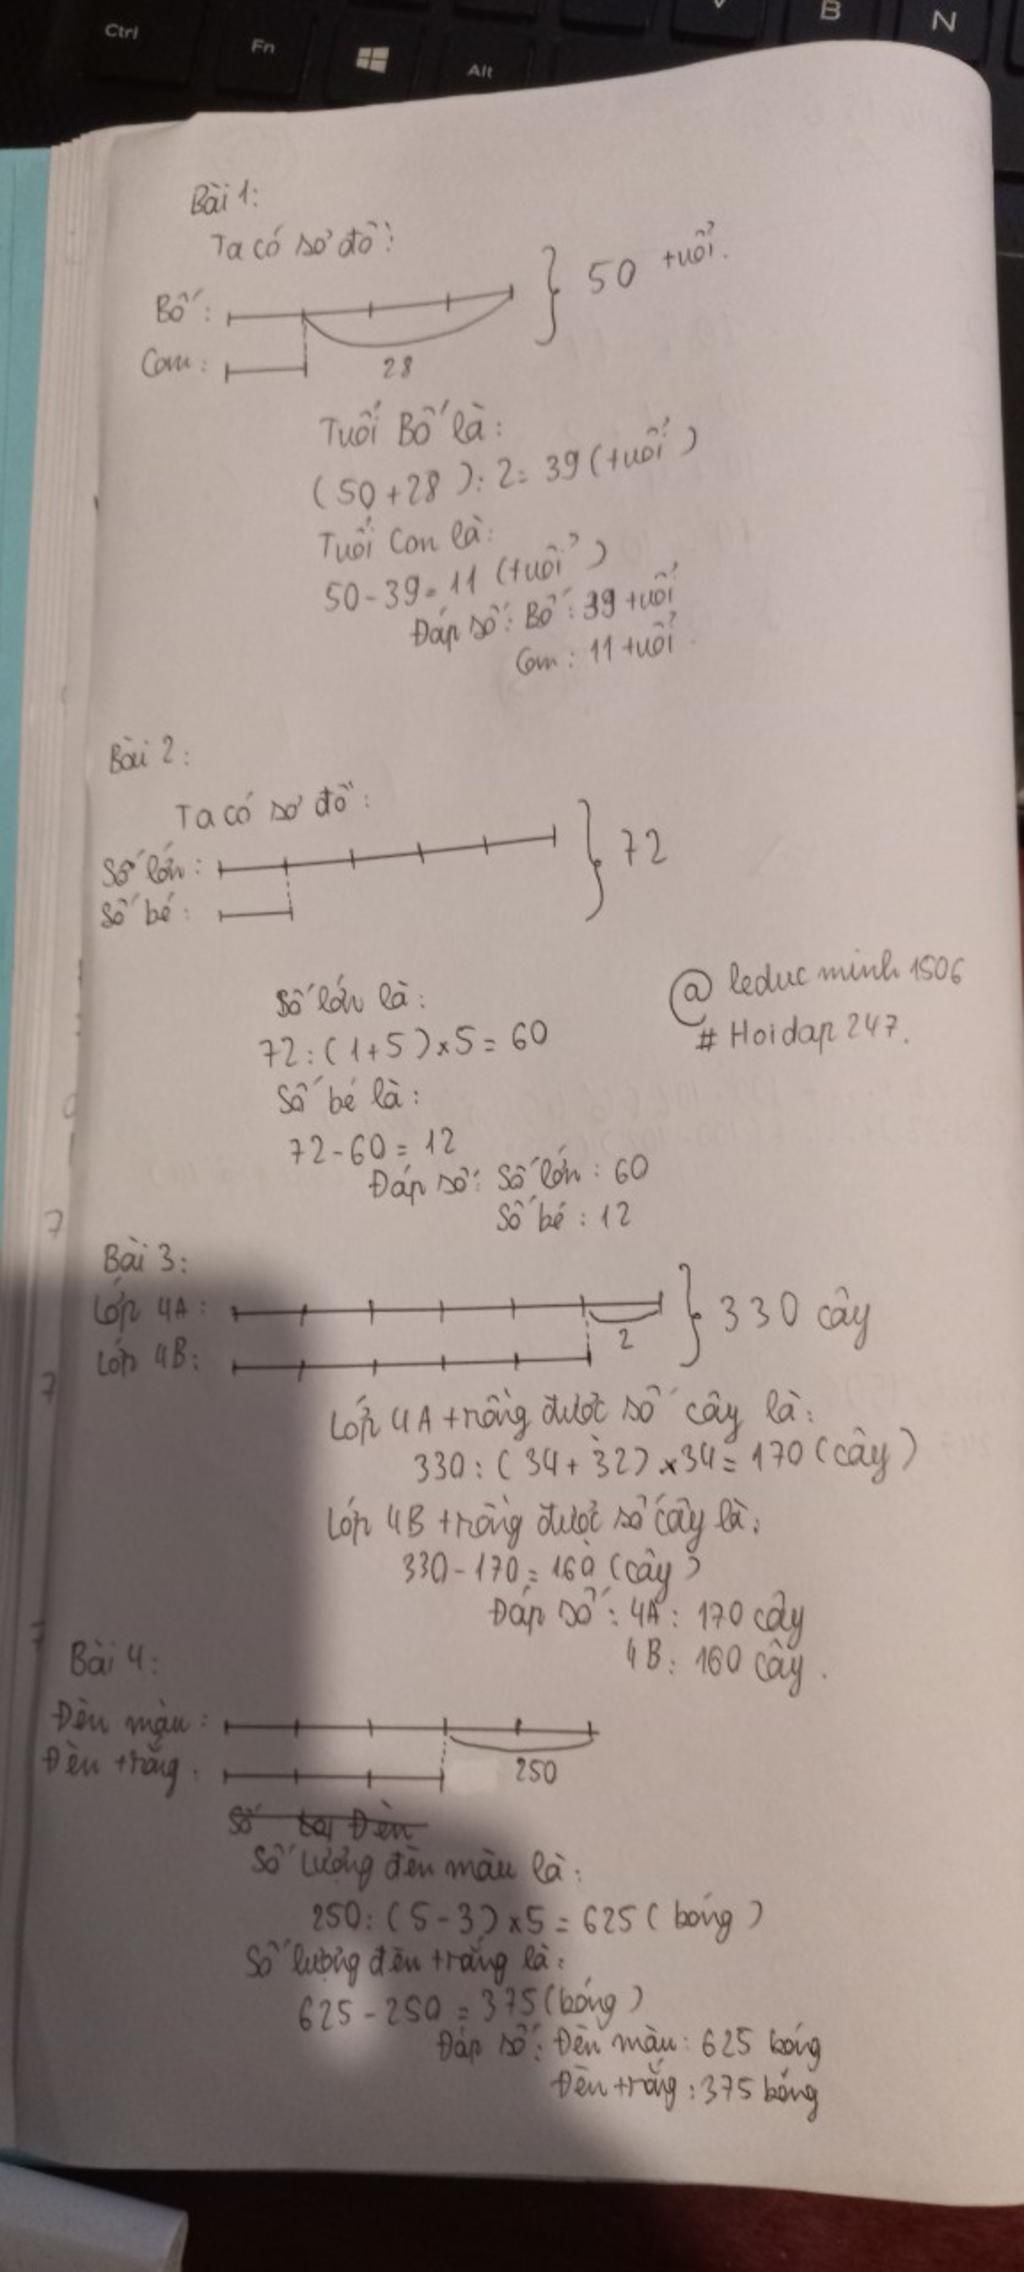 Ctrl
Fn
Alt
V
B
N
Bài 1:
Ta có sơ đồ:
Bố:
} 50 tuổi.
Con:
28
Tuổi Bố là:
(50+28):2=39(tuổi)
Tuổi Con là:
50-39=11 (tuổi)
Đáp số: Bố: 39 tuổi
Con: 11 tuổi.
Bài 2:
Ta có sơ đồ:
Số lớn:
} 72
Số bé:
Số lớn là:
@ leducminh1506
72:(1+5)×5=60
# Hoidap247.
Số bé là:
72-60=12
Đáp số: Số lớn: 60
Số bé: 12
7
Bài 3:
Lớp 4A:
2
} 330 cây
Lớp 4B:
7
Lớp 4A trồng được số cây là:
330:(34+32)×34=170(cây)
Lớp 4B trồng được số cây là:
330-170=160(cây)
Đáp số: 4A: 170 cây
4B: 160 cây.
7
Bài 4:
Đèn màu:
Đèn trắng:
250
Số lượng đèn màu là:
250:(5-3)×5=625(bóng)
Số lượng đèn trắng là:
625-250=375(bóng)
Đáp số: Đèn màu: 625 bóng
Đèn trắng: 375 bóng